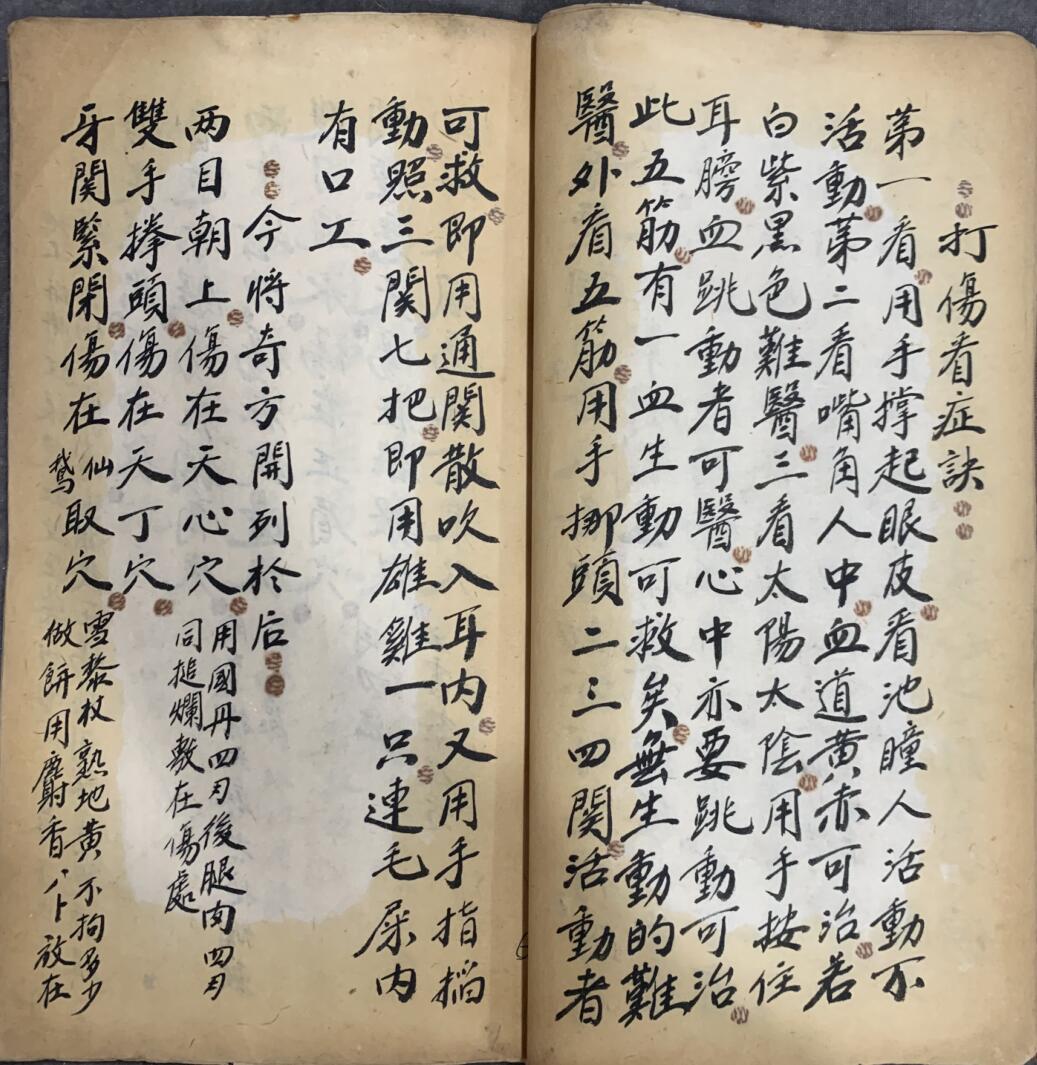 打傷看症訣
第一看用手撑起眼皮看池瞳人活動不
活動第二看嘴角人中血道黄赤可治若
白紫黑色難醫三看太陽太陰用手按住
耳膀血跳動者可醫心中亦要跳動可治
此五筋有一血生動可救矣無生動的難
醫外看五筋用手挪頭二三四関活動者
可救即用通関散吹入耳内又用手指搯
動照三関七把即用雄雞一只連毛屎内
有口工
今将奇方開列於后
两目朝上傷在天心穴
用國丹四刃後腿肉四刃
同搥爛敷在傷處
雙手拳頭傷在天丁穴
牙関緊閉傷在仙鵞取穴
雪黎杖熟地黄不拘多少
做餅用麝香八卜放在